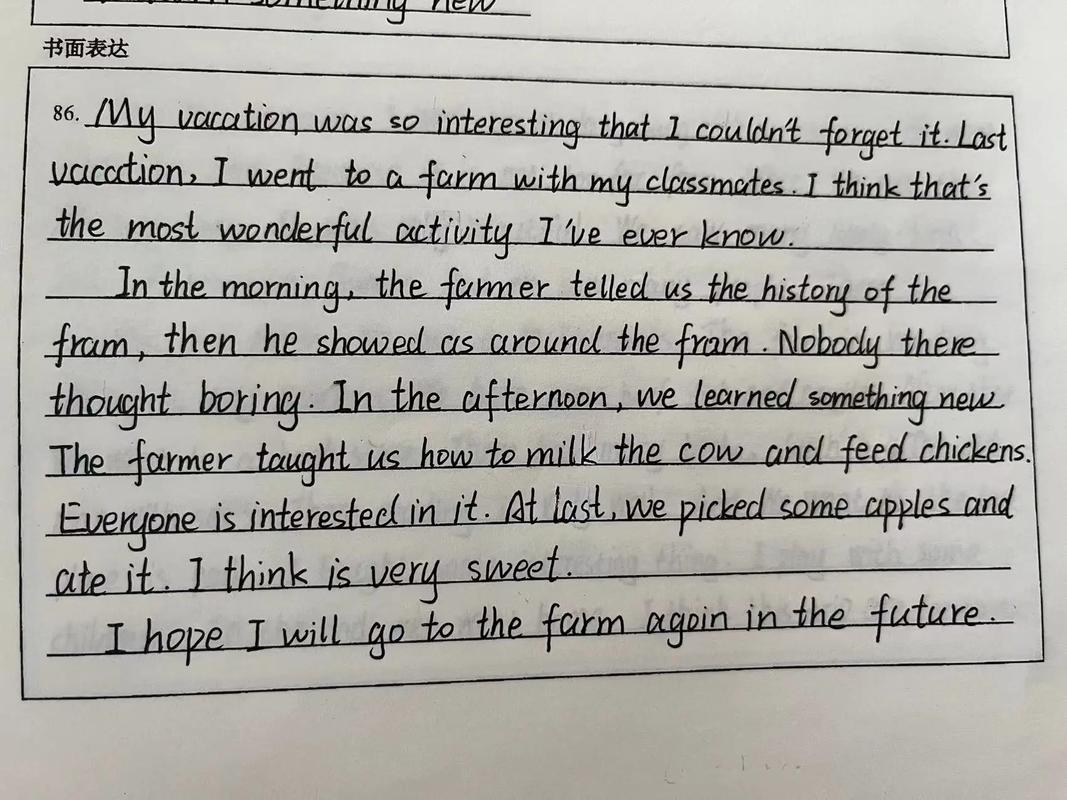 something new
书面表达
86. My vacation was so interesting that I couldn't forget it. Last
vacation, I went to a farm with my classmates. I think that's
the most wonderful activity I've ever know.
In the morning, the farmer telled us the history of the
fram, then he showed as around the fram. Nobody there
thought boring. In the afternoon, we learned something new.
The farmer taught us how to milk the cow and feed chickens.
Everyone is interested in it. At last, we picked some apples and
ate it. I think is very sweet.
I hope I will go to the farm again in the future.